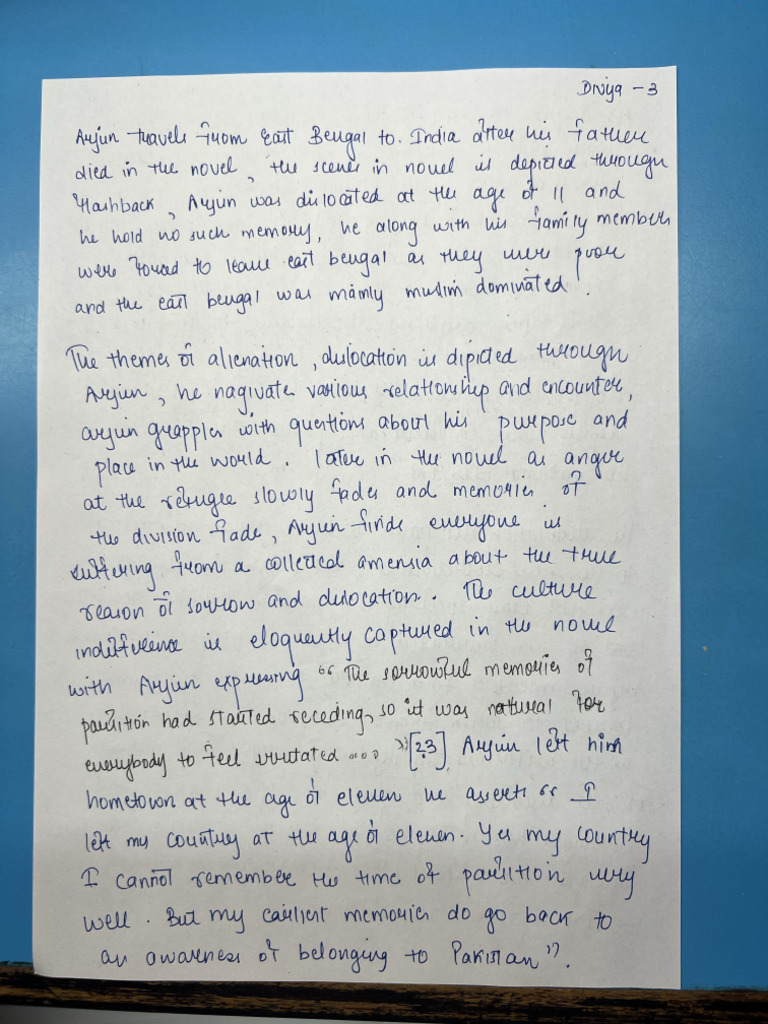 Divya - 3
Arjun travels from East Bengal to. India after his father
died in the novel, the scenes in novel is depicted through
flashback, Arjun was dislocated at the age of 11 and
he hold no such memory, he along with his family members
were forced to leave east bengal as they were poor
and the east bengal was mainly muslim dominated.
The themes of alienation, dislocation is dipicted through
Arjun, he nagivate various relationship and encounter,
arjun grapples with questions about his purpose and
place in the world. later in the novel as anger
at the refugee slowly fades and memories of
the division fade, Arjun finds everyone is
suffering from a collected amensia about the true
reason of sorrow and dislocation. The culture
indifference is eloquently captured in the novel
with Arjun expressing "The sorrowful memories of
partition had started receding, so it was natural for
everybody to feel irritated ...." [23] Arjun left him
hometown at the age of eleven he asserts " I
left my country at the age of eleven. Yes my country
I cannot remember the time of partition very
well. But my earliest memories do go back to
an awareness of belonging to Pakistan".